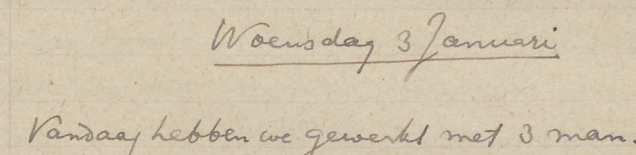 Woensdag 3 Januari
Vandaag hebben we gewerkt met 3 man.